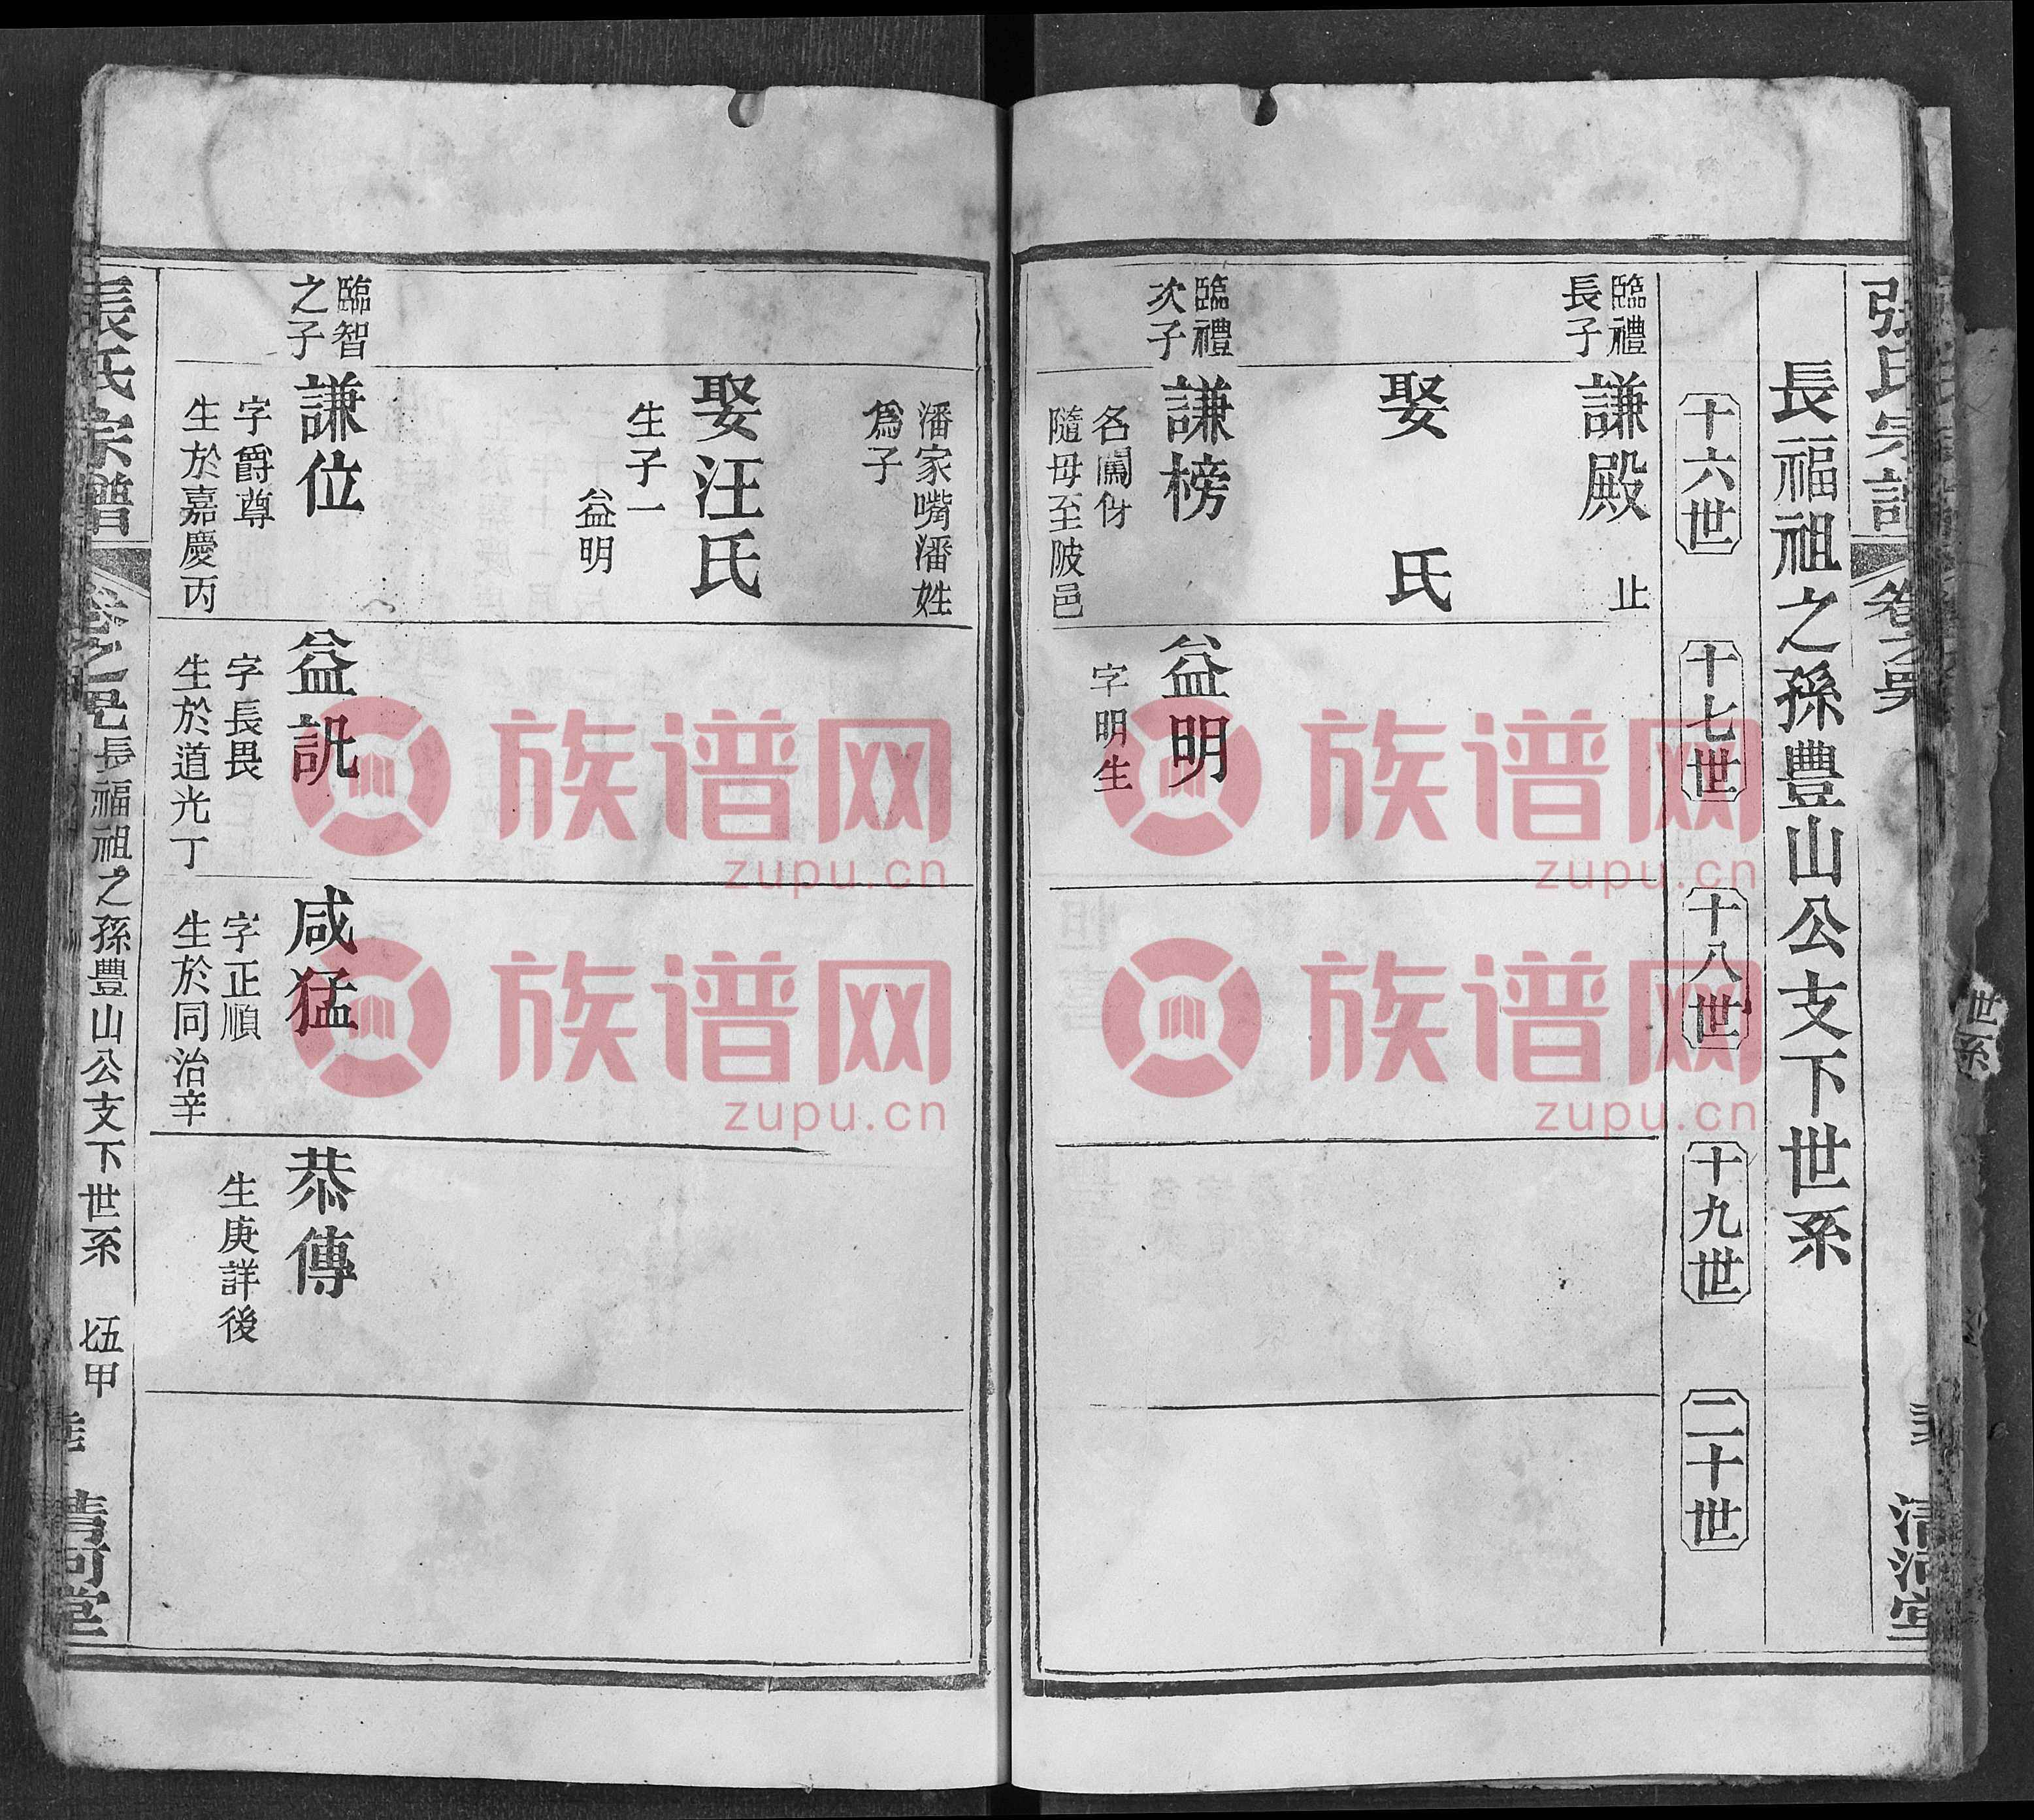 張氏宗譜
清河堂
長福祖之孫豐山公支下世系
十六世
十七世
十八世
十九世
二十世
臨禮
長子
謙殿
止
娶 氏
臨禮
次子
謙榜
名闖伢
隨母至陂邑
益明
字明生
潘家嘴潘姓
為子
娶汪氏
生子一
益明
臨智
之子
謙位
字爵尊
生於嘉慶丙
益訊
字長畏
生於道光丁
咸猛
字正順
生於同治辛
恭傳
生庚詳後
張氏宗譜
長福祖之孫豐山公支下世系
伍甲
清河堂
世系
族谱网
zupu.cn
族谱网
zupu.cn
族谱网
zupu.cn
族谱网
zupu.cn